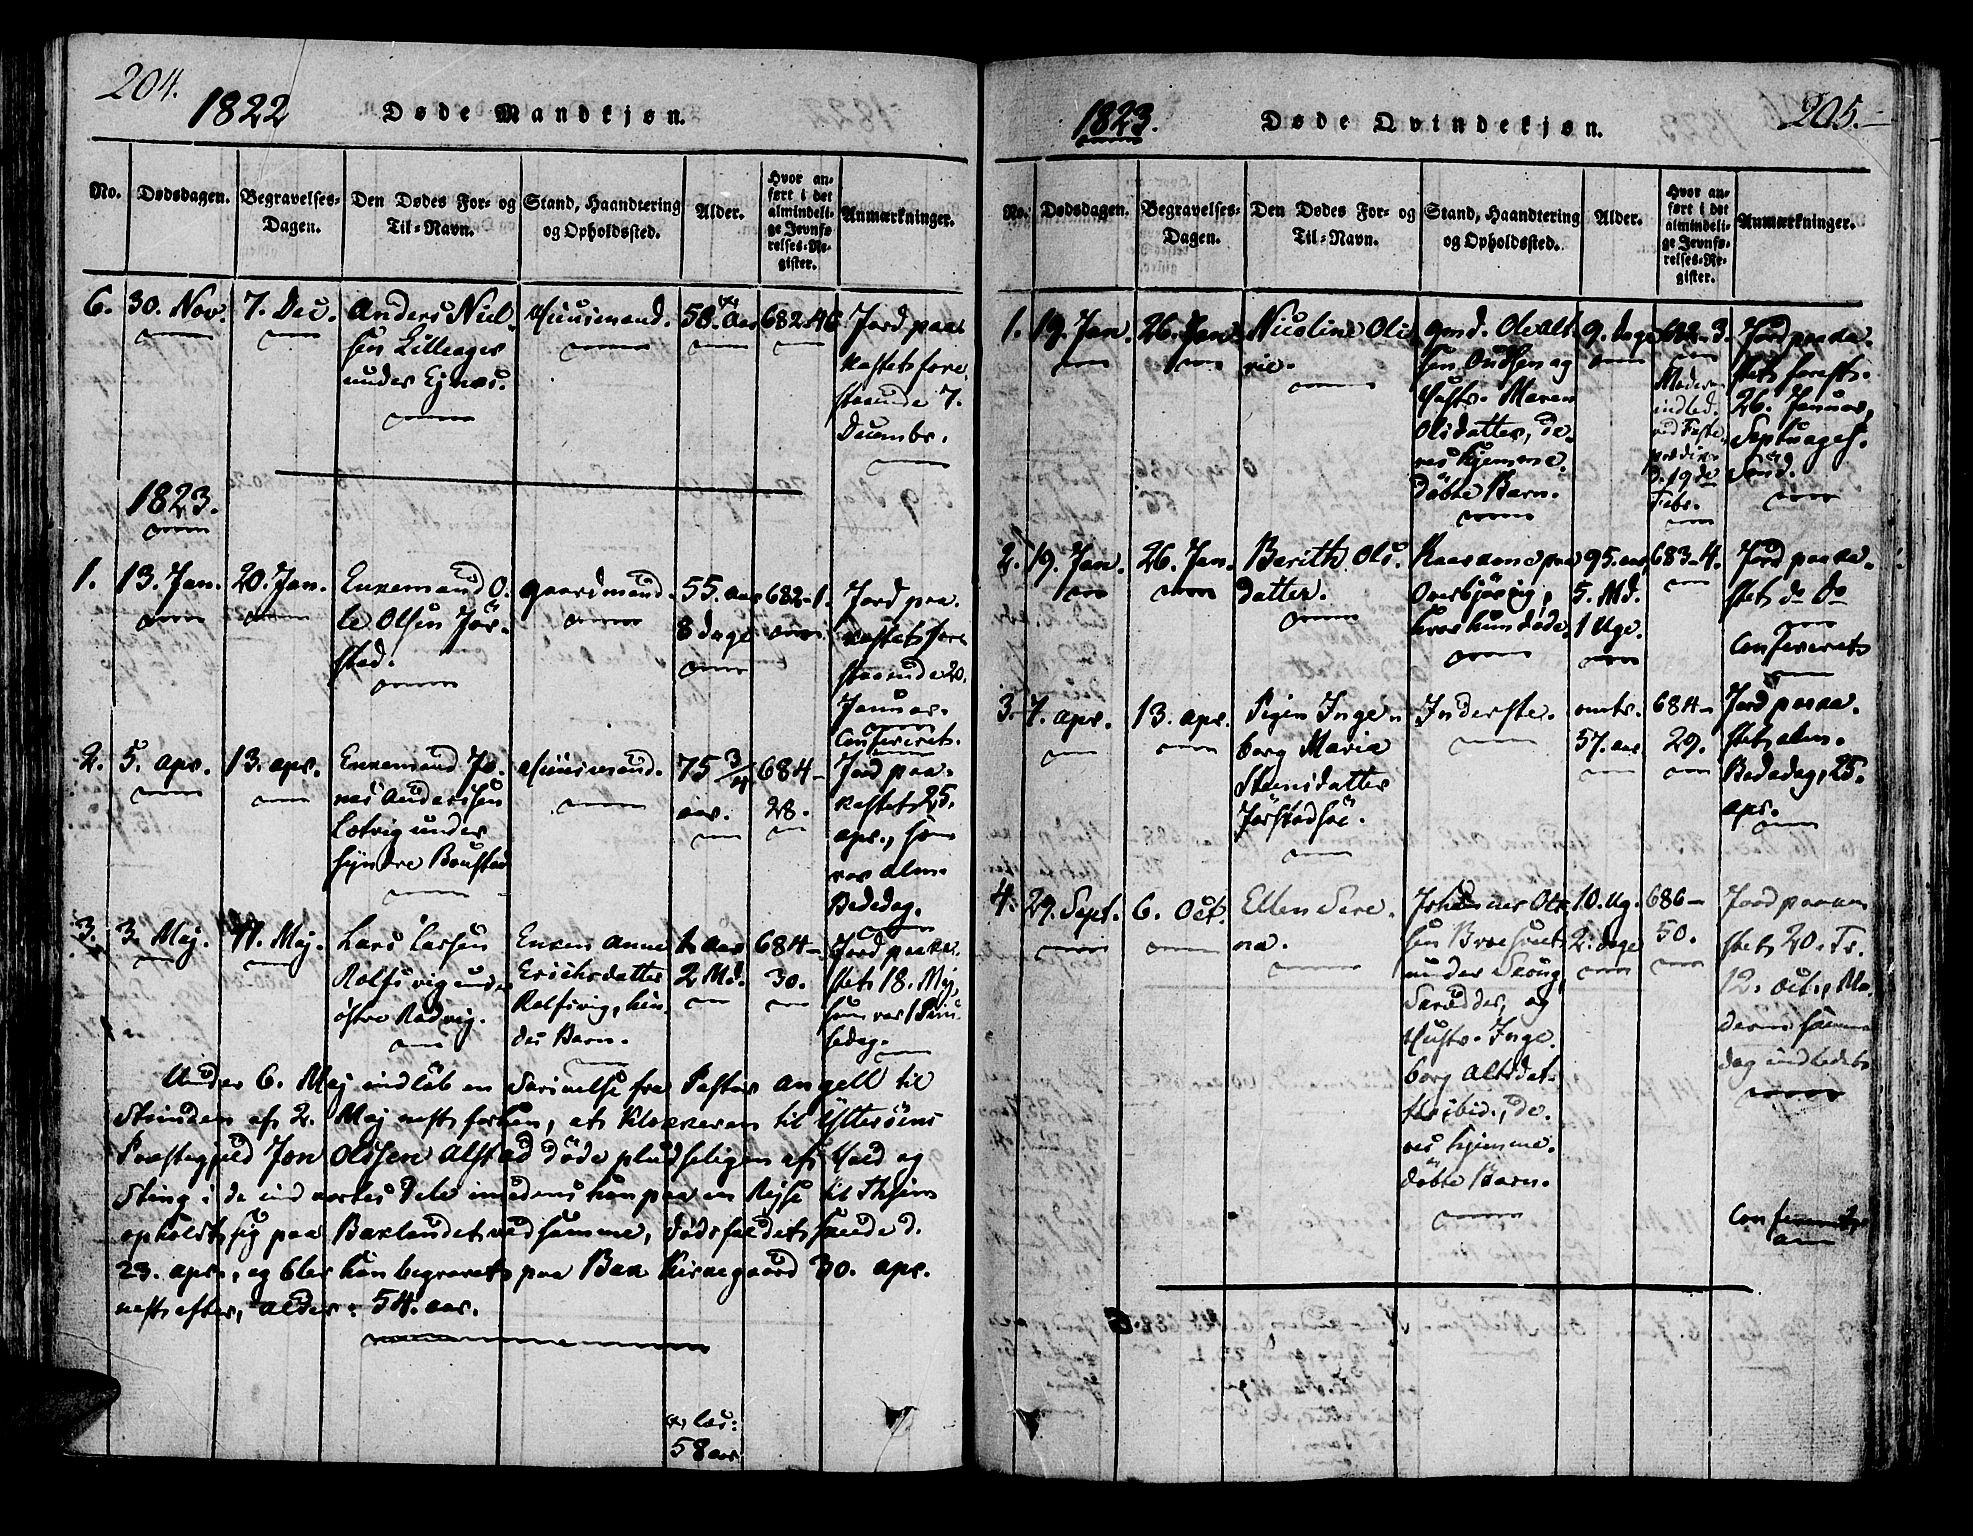 204.
1822 Døde Mandkjøn.
No.
Dødsdagen.
Begravelses-
Dagen.
Den Dødes For- og
Til-Navn.
Stand, Haandtering
og Opholdssted.
Alder.
Hvor an-
ført i det
almindeli-
ge Jevnfø-
relses-Re-
gister.
Anmærkninger.
6.
30. Nov.
7. Dec.
Anders Niel-
sen Lilleager
under Ejnes.
Huusmand.
58. Aar
682-46
Jord paa-
kastet fore-
staaende 7.
Decembr.
1823.
1.
13. Jan.
20. Jan.
Enkemand O-
le Olsen Jør-
stad.
Gaardmand.
55. aar
8 dage
682-1.
Jord paa-
kastet fore-
staaende 20.
Januar.
Confereret.
2.
5. apr.
13. apr.
Enkemand Jo-
nas Anderssen
under
Huusmand.
75 3/4
aar.
684-
28.
Jord paa-
kastet 25.
apr., som
var alm.
Bededag.
3.
3. Maj.
11. Maj.
Lars Larsen
Rolfsvig under
østre Radvig.
Enken Anne
Erichsdatter
Rolfsvig, hen-
des Barn.
2 Md.
684-
30.
Jord paaka-
stet 18. Maj,
som var 1 Pint-
sedag.
Under 6. Maj indløb en Skrivelse fra Pastor Angell til
af 2. Maj nest forhen, at Klokkeren til Ytterøens
Præstegjeld Jon Olssen Alstad døde pludseligen af Hold og
Sting i de indvortes Dele imedens han paa en Rejse til Thjem
opholdt sig paa Baklandet ved samme, Dødsfaldet skeede d.
23. apr., og blev han begravet paa Bak Kirkegaard 30. apr.
nest efter, alder: 54. aar.
læs:
58 aar
205.
1823. Døde Qvindekjøn.
No.
Dødsdagen.
Begravelses-
Dagen.
Den Dødes For- og
Til-Navn.
Stand, Haandtering
og Opholdssted.
Alder.
Hvor an-
ført i det
almindeli-
ge Jevnfø-
relses-Re-
gister.
Anmærkninger.
1.
19. Jan.
26. Jan.
Nicoline Oli-
vie.
Gmd. Ole Olt-
sen og
Hustr. Maren
Olsdatter, de-
res hjemme-
døbte Barn.
9. dage
682-3.
Moderen
indled.
ved Faste-
prædiken
d. 19de
Febr.
Jord paaka-
stet forest.
26. Januar,
Septuages.
Sønd.
2.
19. Jan.
26. Jan.
Berith Ols-
datter.
paa
hvor hun døde.
95. aar,
5. Md.
1 Uge.
683-4.
Jord paaka-
stet do Do
Confereret
3.
7. apr.
13. apr.
Pigen Inge-
borg Maria
Steensdatter
Jørstadsøe.
Inderste.
omtr.
57. aar
684-
29.
Jord paaka-
stet alm.
Bededag, 25.
apr.
4.
29. Sept.
6. Oct.
Ellen Sere-
na.
Johannes Ol-
sen
under
og
Hustr. Inge-
borg Olsdat-
ter ibid., de-
res hjemme-
døbte Barn.
10. Ug.
2. dage
686-
50.
Jord paaka-
stet 20. Tr.
12. Oct., Mo-
deren samme
dag indledet
Confereret